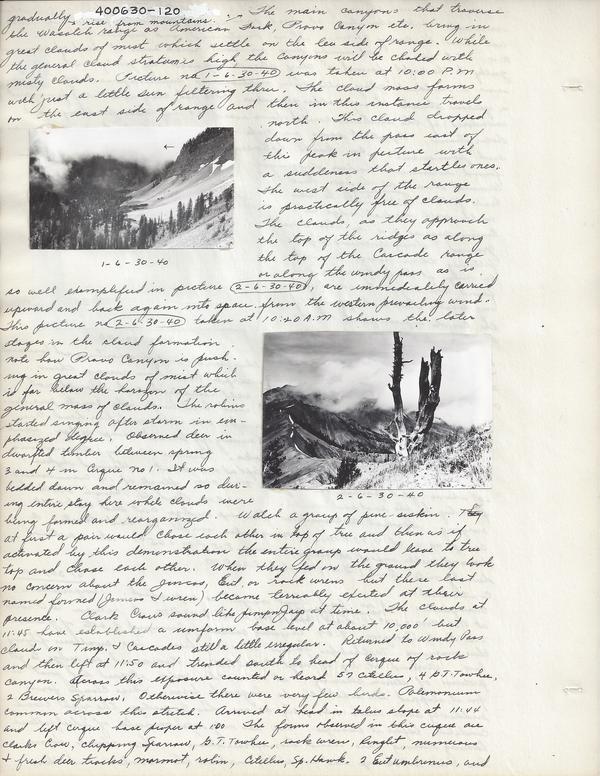 400630-120
gradually & rise from mountains. The main canyons that traverse
the Wasatch range as American Fork, Provo Canyon etc. bring in
great clouds of mist which settle on the lea side of range. While
the general cloud stratum is high the Canyons will be choked with
misty clouds. Picture no 1-6-30-40 was taken at 10:00 P.M
with just a little sun filtering thru. The cloud mass forms
on the east side of range and then in this instance travels
north. This cloud dropped
down from the pass east of
this peak in picture with
a suddeness that startles ones.
The west side of the range
is practically free of clouds.
The clouds, as they approach
the top of the ridges as along
the top of the Cascade range
or along the windy pass as is
1-6-30-40
so well exemplified in picture 2-6-30-40, are immediately carried
upward and back again into space from the western prevailing wind.
This picture no 2-6-30-40 taken at 10:20 A.M shows the later
stages in the cloud formation
note how Provo Canyon is push-
ing in great clouds of mist which
is far below the horizon of the
general mass of clouds. The robins
started singing after storm in em-
phasized degree. Observed deer in
dwarfed timber between spring
3 and 4 in Cirque no 1. It was
bedded down and remained so dur-
ing entire stay here while clouds were
2-6-30-40
being formed and reorganized. Watch a group of pine siskin. They
at first a pair would chase each other in top of tree and then as if
activated by this demonstration the entire group would leave to tree
top and chase each other. When they fed on the ground they took
no concern about the Juncos, Eut. or rock wrens but these last
named formed (Juncos & wren) became terribly excited at their
presence. Clark Crows sound like Jays at time. The clouds at
11:45 have established a uniform base level at about 10,000' but
cloud on Timp. & Cascades still a little irregular. Returned to Windy Pass
and then left at 11:50 and trended south to head of cirque of rock
canyon. Across this exposure counted or heard 57 Citellus, 4 G.T. Towhee,
2 Brewers Sparrow, Otherwise there were very few birds. Polemonium
common across this stretch. Arrived at head in talus slope at 11:44
and left cirque base proper at 1:00 The forms observed in this cirque are
Clarks Crow, Chipping Sparrow, G.T. Towhee, rock wren, Kinglet, numerous
& fresh deer tracks, marmot, robin, Citellus, Sp. Hawk. 2 Eut umbrinus, and